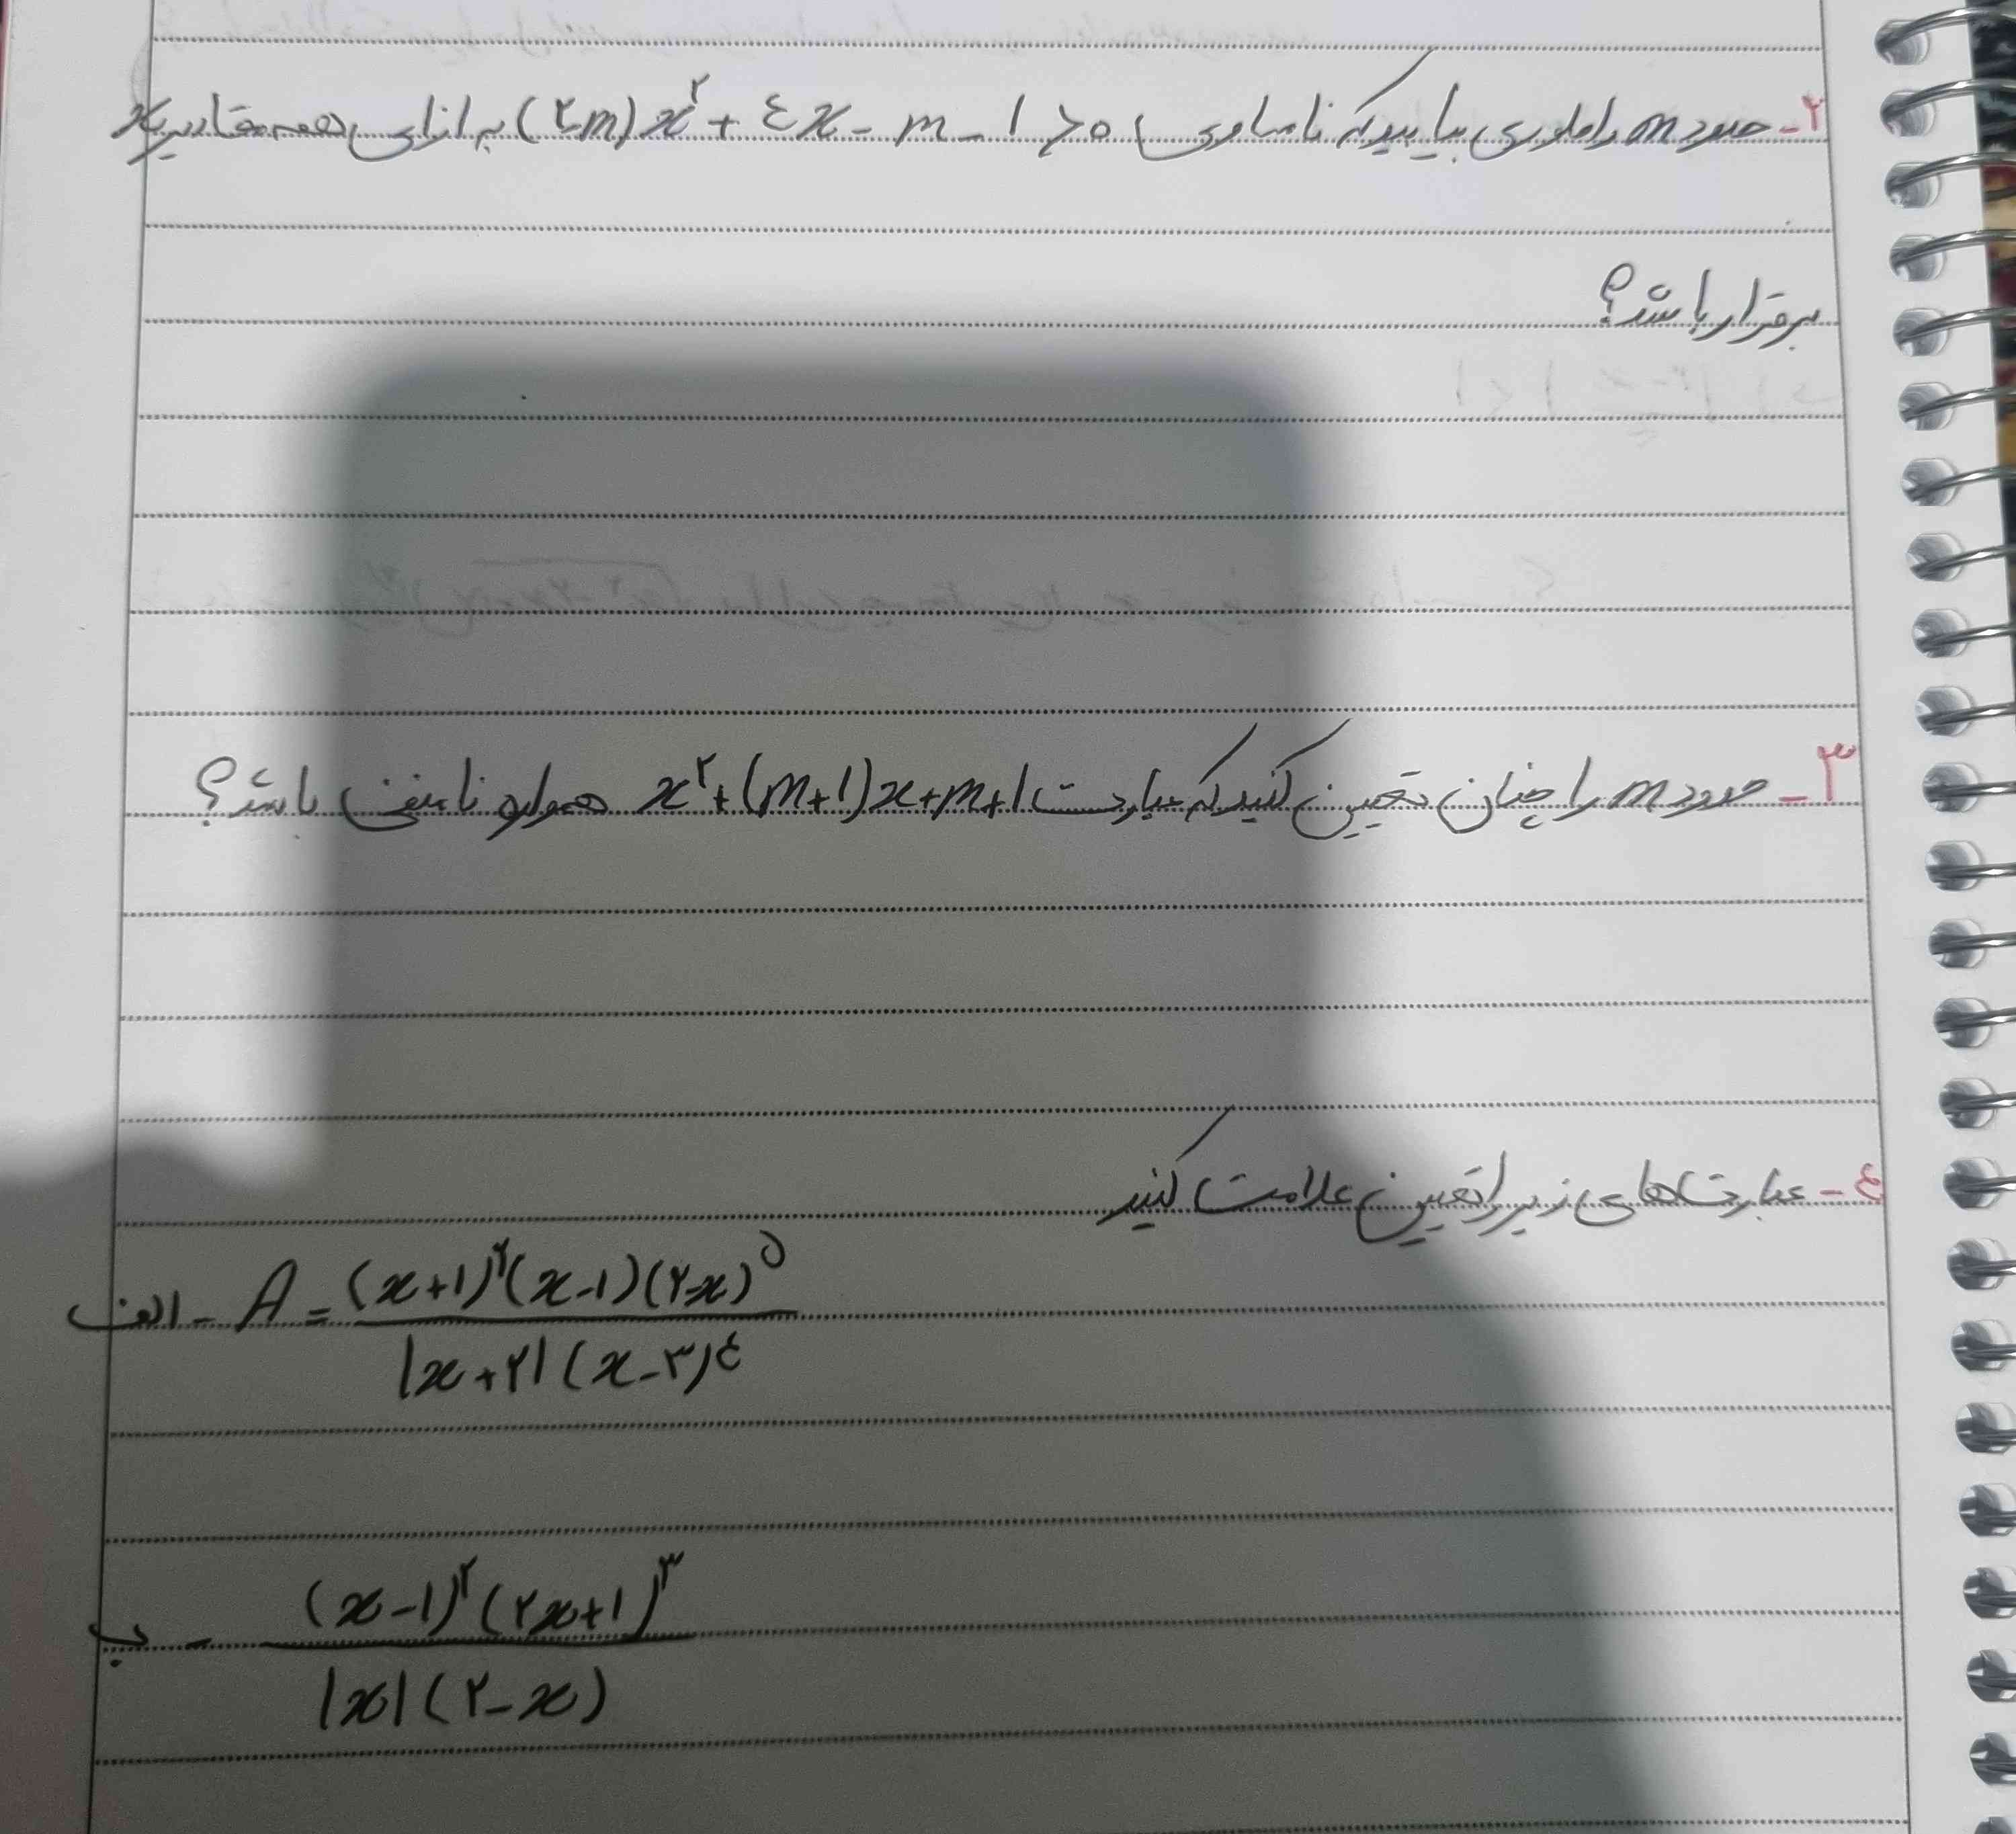 ۲- حدود m را طوری بیابید که نامساوی (۲-m)x^۲ + ٤x - m - ۱ > ۰ به ازای همه مقادیر x
برقرار باشد؟
۳- حدود m را چنان تعیین کنید که عبارت x^۲+(m+۱)x+m+۱ همواره نامنفی باشد؟
٤- عبارت های زیر را تعیین علامت کنید
الف - A = (x+۱)^۲(x-۱)(۲-x)^۵
|x+۲|(x-۳)^٤
ب - (x-۱)^۲(۲x+۱)^۳
|x|(۲-x)